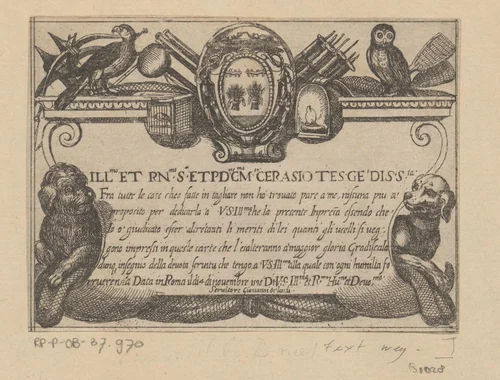 ILL.mo ET RN.mo S.r ET PD CM.r CERASIO TES. GE. DI S.S.ta
Fra tutte le cose ches fatte in tagliare non hò trovato pare à me, nissuna piu à
proposito per dedicarla à V.S. Ill.ma che la presente Impresa essendo che
Io ò giudicato esser altretanti li meriti di lei quanti gli ucelli si veg.
gono impressi in queste carte che l'esalteranno à maggior gloria Gradiscala
dunq insegno della devota servitu che tengo à V.S. Ill.ma alla quale con ogni humilta fo
riverenza Data in Roma novembre Di V.S. Ill.ma & R.ma Hu.mo et Devo.mo
Servitore Giovanni Orlandi
RP-P-OB-37.970
text weg